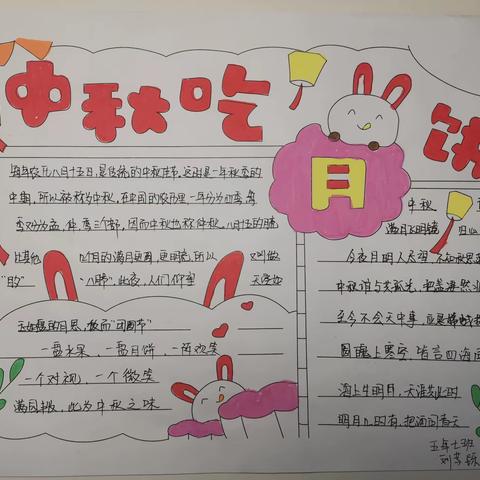 中秋吃月饼
每年农历八月十五日,是传统的中秋佳节,这时是一年秋季的
中期,所以被称为中秋,在中国的农历里,一年分为四季,每
季又分为孟、仲、季三个部,因而中秋也称仲秋,八月十五的
比其他 个月的满月更圆,更明亮,所以 又叫做
"月 "八月节",此夜,人们仰望 天
玉 的月思, "团圆节"
一盘水果、一盘月饼、一阵欢笑
一个对视、一个微笑
满园 ,此为中秋之味
中秋
满月飞明镜 归心
今夜月明人尽望,不知秋思
中秋谁与共孤光,把盏凄然
至今不会天中事,应是嫦娥
圆 上寒空,皆言四海
海上生明月,天涯共此时
明月几时有,把酒问青天
五年七班
刘